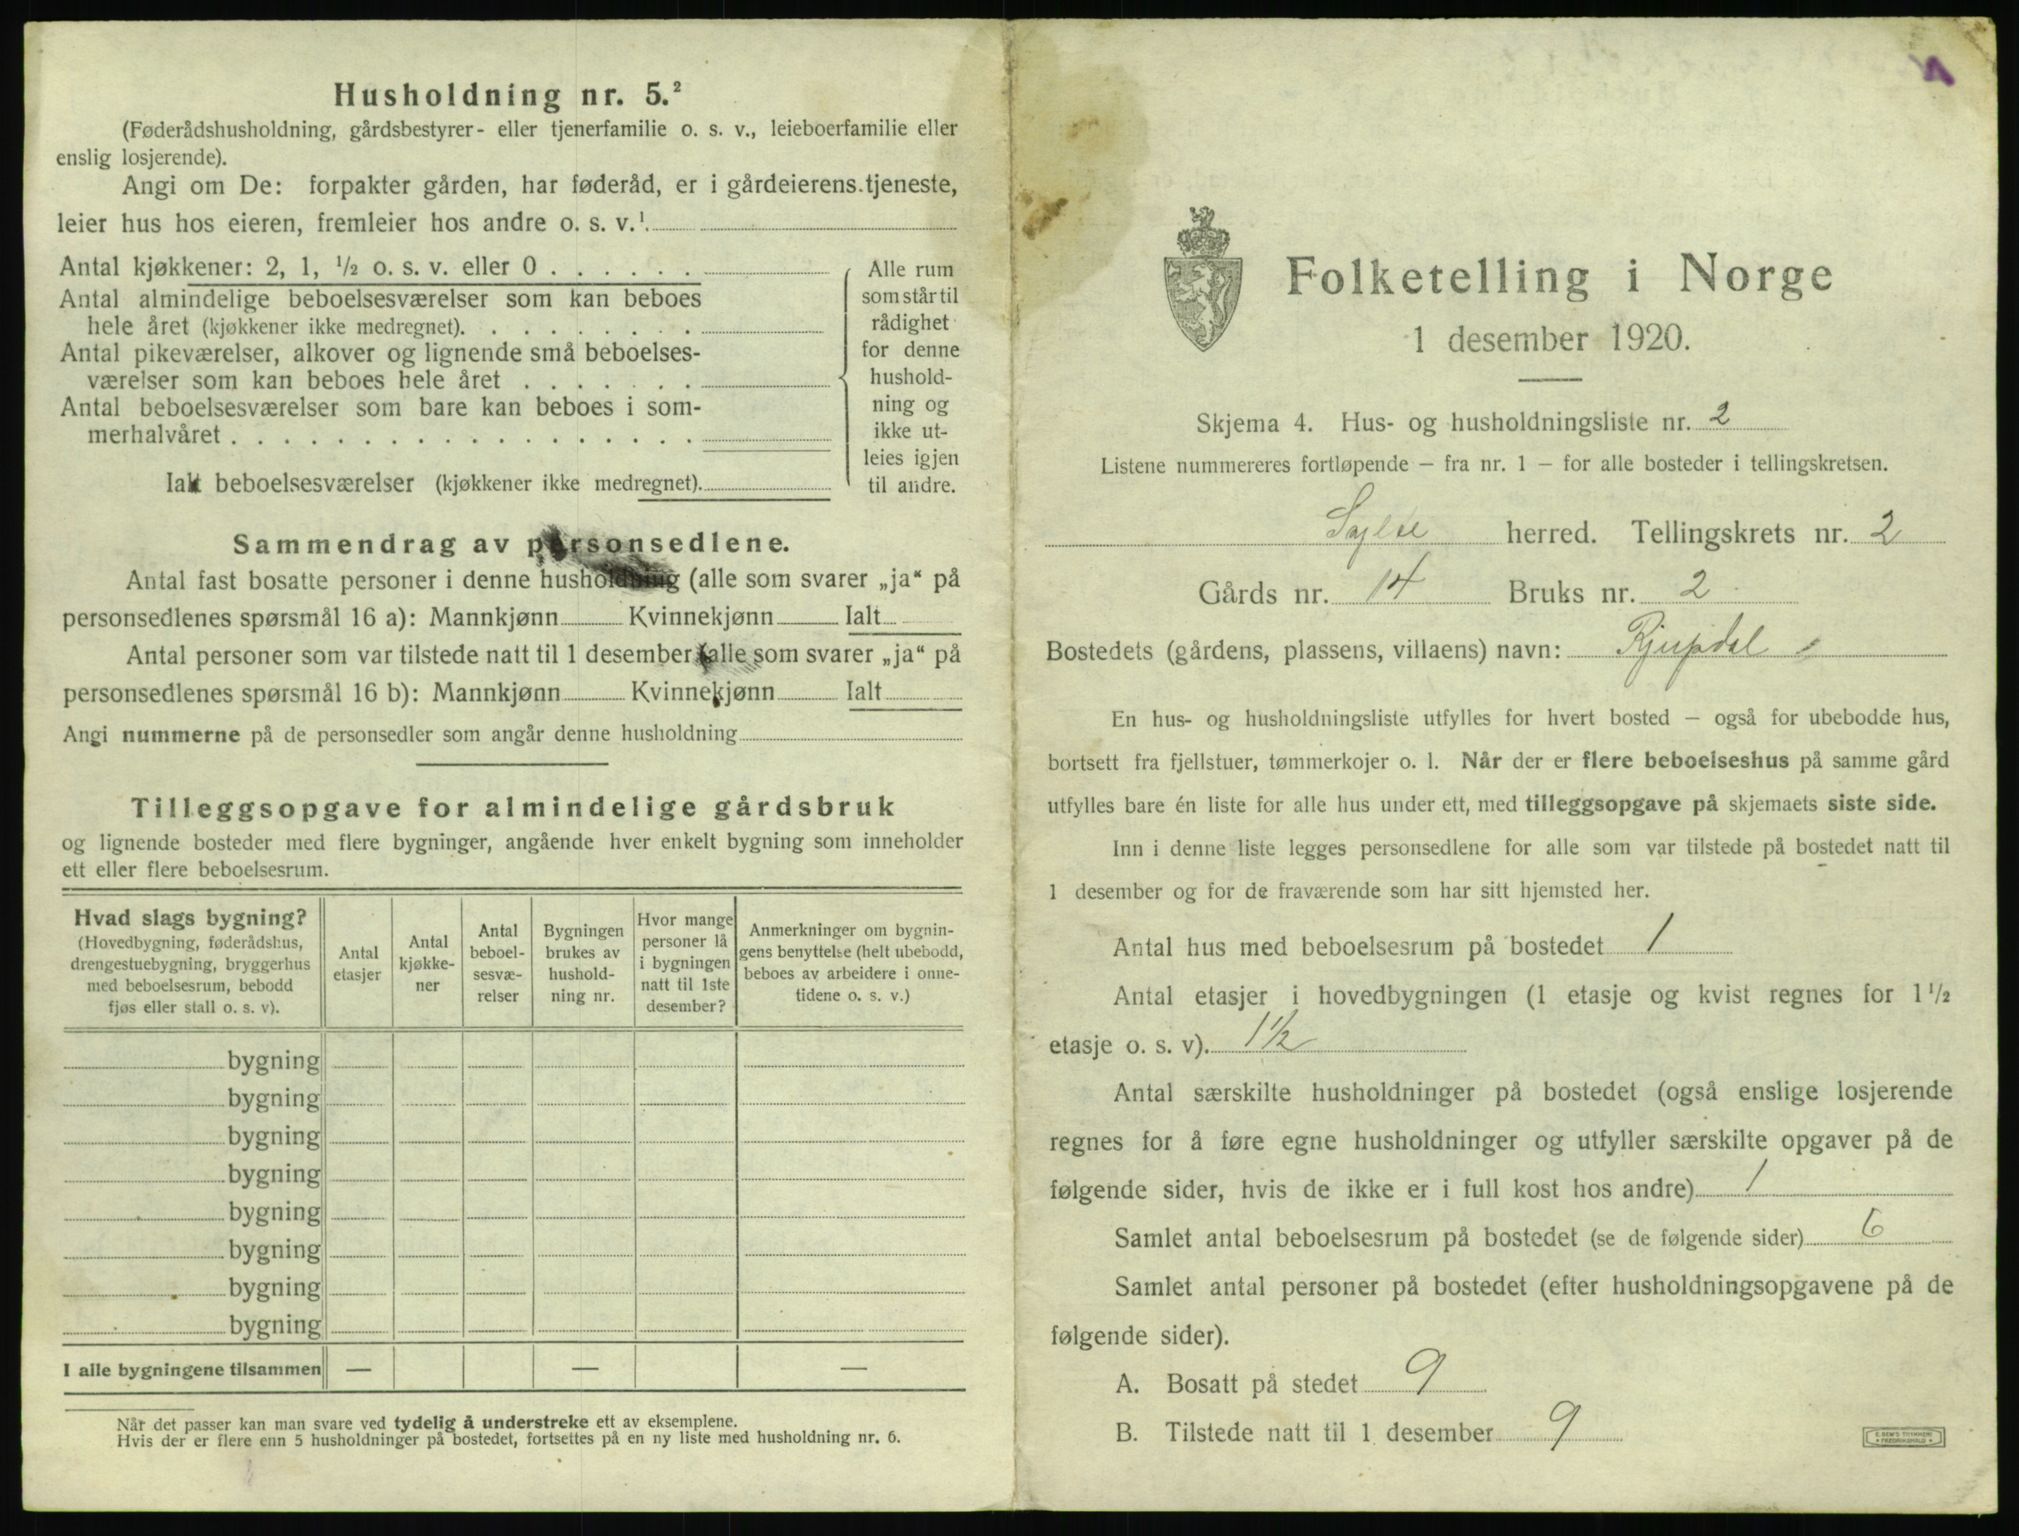 Husholdning nr. 5.²
(Føderådshusholdning, gårdsbestyrer- eller tjenerfamilie o. s. v., leieboerfamilie eller
enslig losjerende).
Angi om De: forpakter gården, har føderåd, er i gårdeierens tjeneste,
leier hus hos eieren, fremleier hos andre o. s. v.¹
Antal kjøkkener: 2, 1, ½ o. s. v. eller 0 . . . . . .
Antal almindelige beboelsesværelser som kan beboes
hele året (kjøkkener ikke medregnet). . . . . . . . .
Antal pikeværelser, alkover og lignende små beboelses-
værelser som kan beboes hele året . . . . . . .
Antal beboelsesværelser som bare kan beboes i som-
merhalvåret . . . . . . . . . . . . . . . . . .
Ialt beboelsesværelser (kjøkkener ikke medregnet).
Alle rum
som står til
rådighet
for denne
hushold-
ning og
ikke ut-
leies igjen
til andre.
Sammendrag av personsedlene.
Antal fast bosatte personer i denne husholdning (alle som svarer „ja“ på
personsedlenes spørsmål 16 a): Mannkjønn Kvinnekjønn Ialt
Antal personer som var tilstede natt til 1 desember (alle som svarer „ja“ på
personsedlenes spørsmål 16 b): Mannkjønn Kvinnekjønn Ialt
Angi nummerne på de personsedler som angår denne husholdning
Tilleggsopgave for almindelige gårdsbruk
og lignende bosteder med flere bygninger, angående hver enkelt bygning som inneholder
ett eller flere beboelsesrum.
Hvad slags bygning?
(Hovedbygning, føderådshus,
drengestuebygning, bryggerhus
med beboelsesrum, bebodd
fjøs eller stall o. s. v).
Antal
etasjer
Antal
kjøkke-
ner
Antal
beboel-
sesvæ-
relser
Bygningen
brukes av
hushold-
ning nr.
Hvor mange
personer lå
i bygningen
natt til 1ste
desember?
Anmerkninger om bygnin-
gens benyttelse (helt ubebodd,
beboes av arbeidere i onne-
tidene o. s. v.)
bygning
bygning
bygning
bygning
bygning
bygning
bygning
bygning
I alle bygningene tilsammen — — —
Når det passer kan man svare ved tydelig å understreke ett av eksemplene.
Hvis der er flere enn 5 husholdninger på bostedet, fortsettes på en ny liste med husholdning nr. 6.
1
Folketelling i Norge
1 desember 1920.
Skjema 4. Hus- og husholdningsliste nr. 2
Listene nummereres fortløpende – fra nr. 1 – for alle bosteder i tellingskretsen.
Sylte herred. Tellingskrets nr. 2
Gårds nr. 14 Bruks nr. 2
Bostedets (gårdens, plassens, villaens) navn: Rjupdal
En hus- og husholdningsliste utfylles for hvert bosted – også for ubebodde hus,
bortsett fra fjellstuer, tømmerkojer o. l. Når der er flere beboelseshus på samme gård
utfylles bare én liste for alle hus under ett, med tilleggsopgave på skjemaets siste side.
Inn i denne liste legges personsedlene for alle som var tilstede på bostedet natt til
1 desember og for de fraværende som har sitt hjemsted her.
Antal hus med beboelsesrum på bostedet 1
Antal etasjer i hovedbygningen (1 etasje og kvist regnes for 1½
etasje o. s. v). 1½
Antal særskilte husholdninger på bostedet (også enslige losjerende
regnes for å føre egne husholdninger og utfyller særskilte opgaver på de
følgende sider, hvis de ikke er i full kost hos andre) 1
Samlet antal beboelsesrum på bostedet (se de følgende sider) 6
Samlet antal personer på bostedet (efter husholdningsopgavene på de
følgende sider).
A. Bosatt på stedet 9
B. Tilstede natt til 1 desember 9